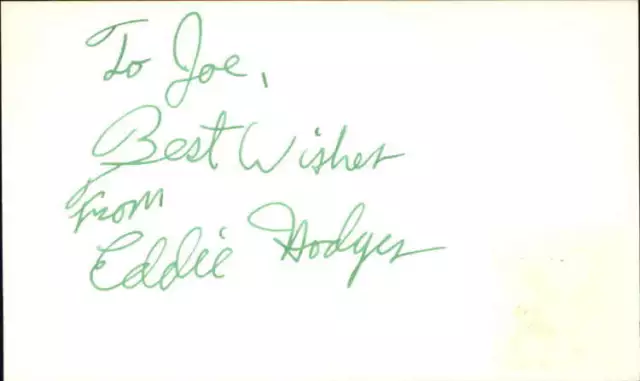 To Joe,
Best Wishes
From
Eddie Hodges